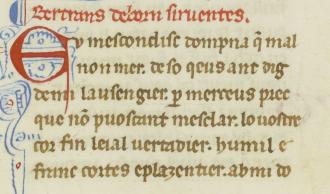 Bertrans deborn siruentes.
Eu mescondisc dompna q̃ mal
non mer. de so qeus ant dig
de mi lausengier. p̱ merceus prec
que nõ puoscant mesclar. lo uostre
cor fin leial uertadier. humil e
franc cortes e plazentier. ab mi do